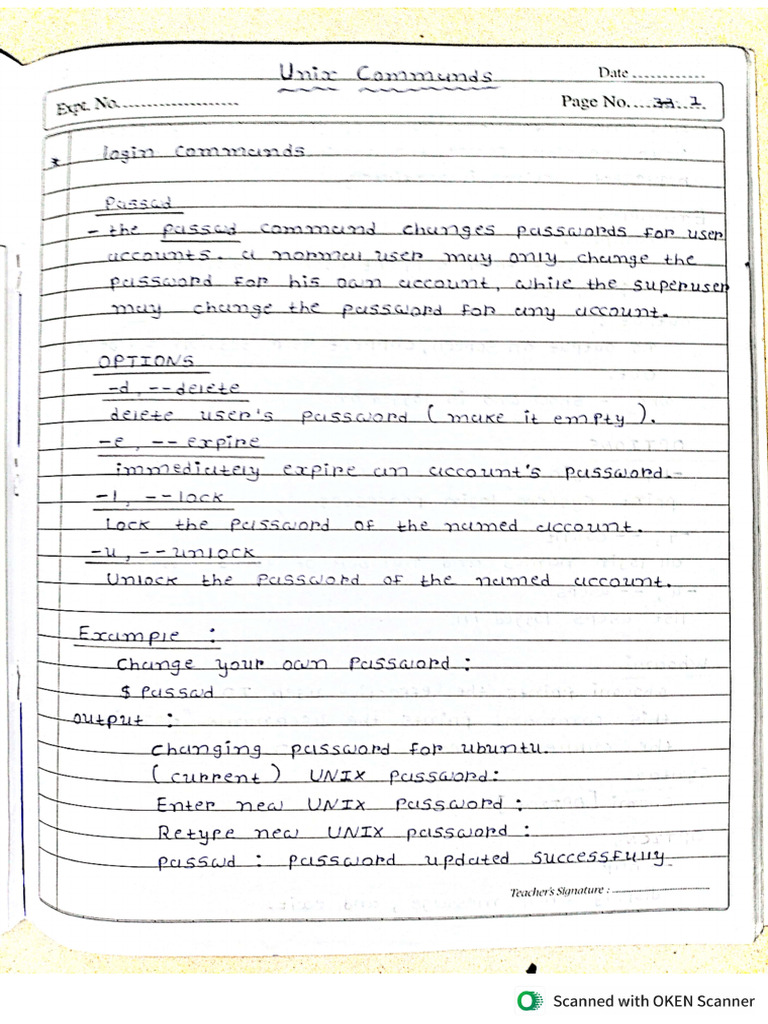 Unix Commands
Date ............
Expt. No.....................
Page No.... 1.
* login commands
Passwd
- the passwd command changes passwords for user
accounts. a normal user may only change the
password for his own account, while the superuser
may change the password for any account.
OPTIONS
-d, --delete
delete user's password (make it empty).
-e, -- expire
immediately expire an account's password.
-l, --lock
Lock the password of the named account.
-u, --unlock
Unlock the password of the named account.
Example :
Change your own password :
$ Passwd
output :
Changing password for ubuntu.
(current) UNIX password:
Enter new UNIX password :
Retype new UNIX password :
passwd : password updated successfully.
Teacher's Signature : ....................
Scanned with OKEN Scanner